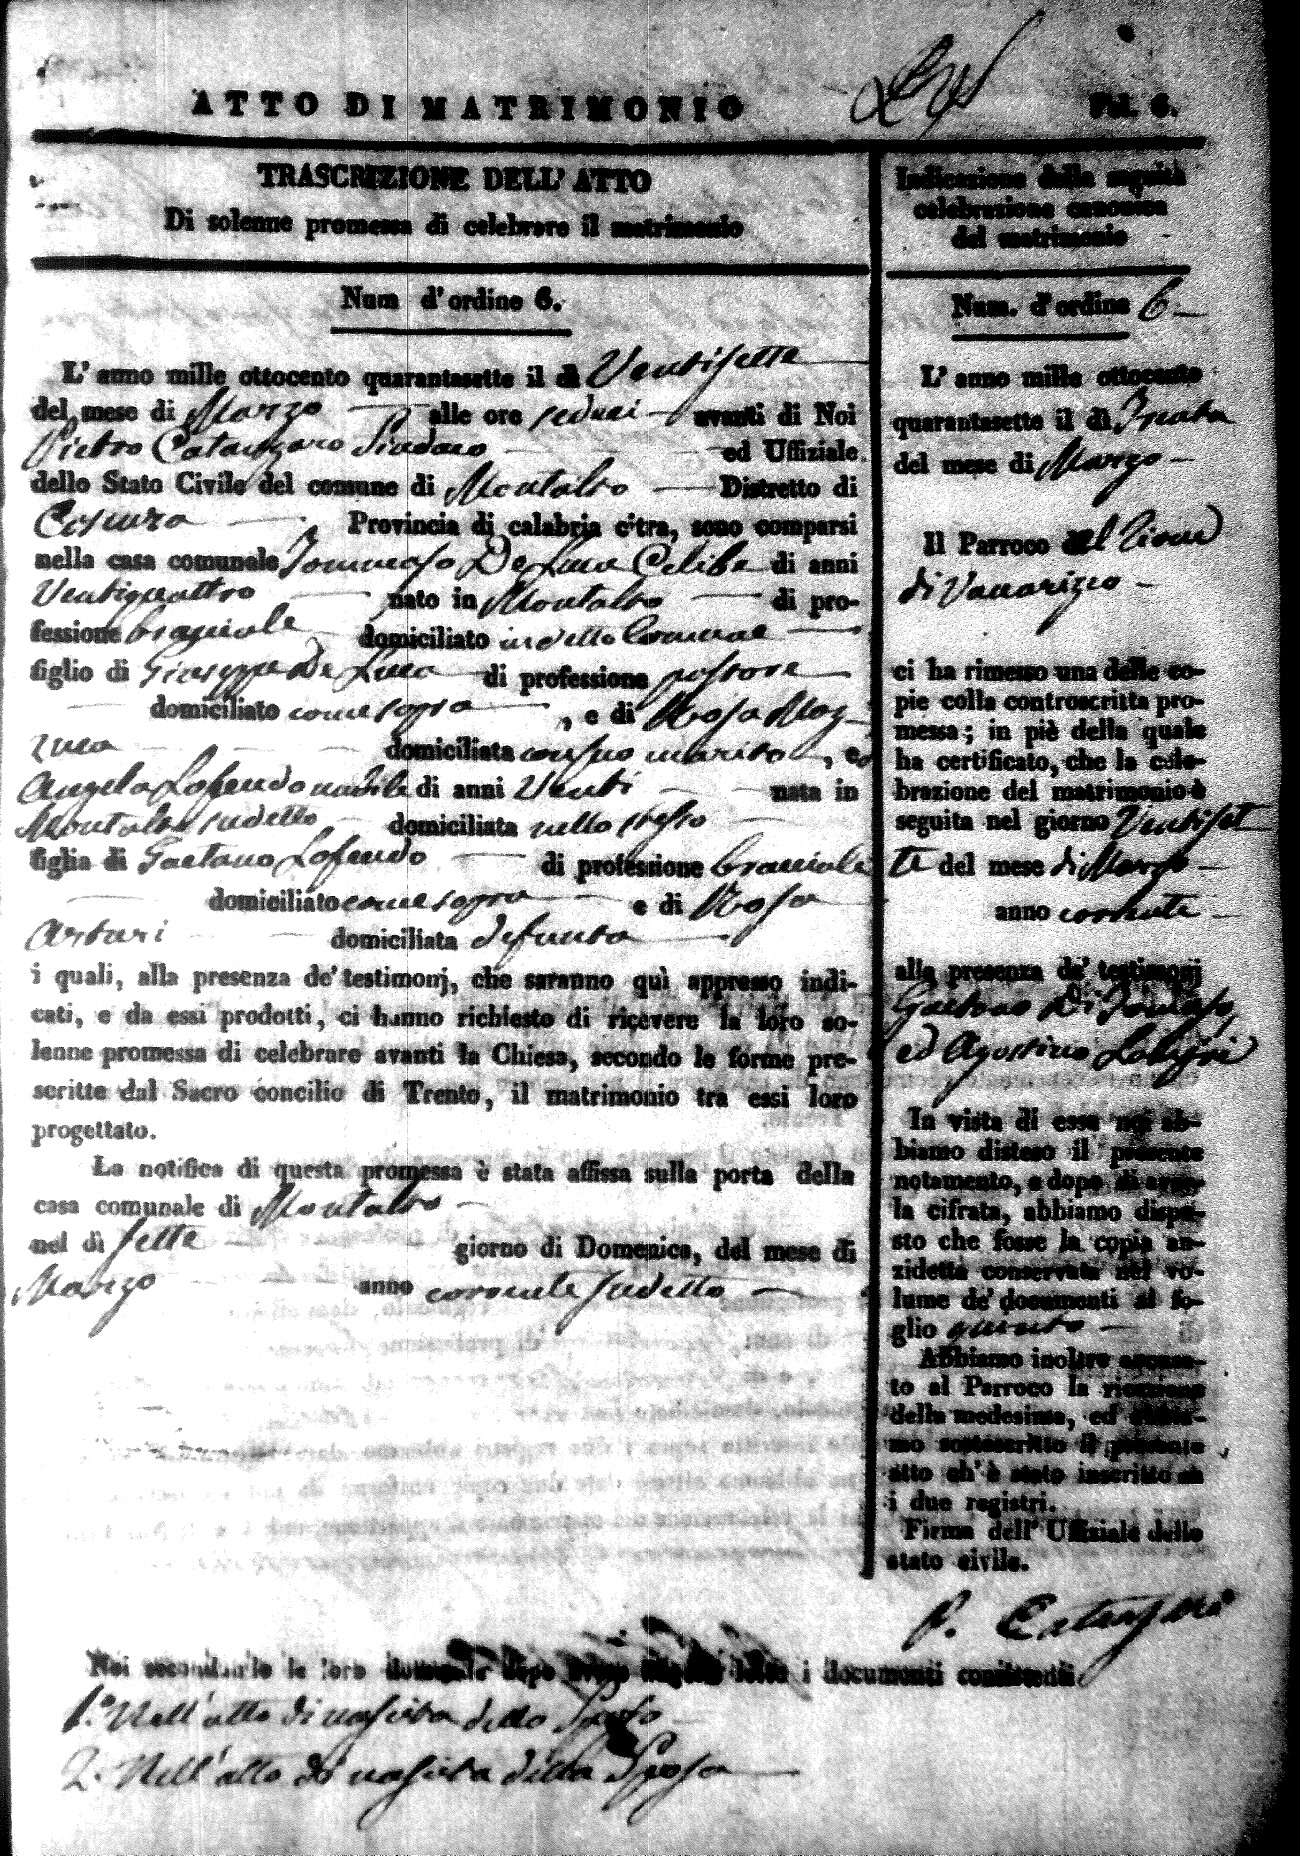 ATTO DI MATRIMONIO
Fol. 6.
TRASCRIZIONE DELL' ATTO
Di solenne promessa di celebrare il matrimonio
Num d'ordine 6.
L' anno mille ottocento quarantasette il dì Ventisette
del mese di Marzo alle ore sedeci avanti di Noi
Pietro Catanzaro Sindaco ed Uffiziale
dello Stato Civile del comune di Montalto Distretto di
Cosenza Provincia di calabria citra, sono comparsi
nella casa comunale Tommaso De Luca Celibe di anni
Ventiquattro nato in Montalto di pro-
fessione bracciale domiciliato in detto Comune
figlio di Giuseppe De Luca di professione pastore
domiciliato come sopra, e di Rosa Maz-
zuca domiciliata con suo marito, e
Angela Lofendo nubile di anni Venti nata in
Montalto sudetto domiciliata nello stesso
figlia di Gaetano Lofendo di professione bracciale
domiciliato come sopra e di Rosa
Arturi domiciliata defunta
i quali, alla presenza de' testimonj, che saranno quì appresso indi-
cati, e da essi prodotti, ci hanno richiesto di ricevere la loro so-
lenne promessa di celebrare avanti la Chiesa, secondo le forme pre-
scritte dal Sacro concilio di Trento, il matrimonio tra essi loro
progettato.
La notifica di questa promessa è stata affissa sulla porta della
casa comunale di Montalto
nel dì sette giorno di Domenica, del mese di
Marzo anno corrente sudetto
Noi secondando le loro domande dopo i documenti consistenti
1.° Nell' atto di nascita dello Sposo
2. Nell' atto di nascita della Sposa
Indicazione della seguita
celebrazione canonica
del matrimonio
Num. d'ordine 6
L' anno mille ottocento
quarantasette il dì Trenta
del mese di Marzo
Il Parroco del
di Vaccarizzo
ci ha rimesso una delle co-
pie colla controscritta pro-
messa; in piè della quale
ha certificato, che la cele-
brazione del matrimonio è
seguita nel giorno Ventiset
te del mese di Marzo
anno corrente
alla presenza de' testimonj
Gaetano Di
ed Agostino
In vista di essa noi ab-
biamo disteso il presente
notamento, e dopo di aver-
la cifrata, abbiamo dispo-
sto che fosse la copia an-
zidetta conservata nel vo-
lume de' documenti al fo-
glio quinto
Abbiamo inoltre accusa-
to al Parroco la ricezione
della medesima, ed abbia-
mo sottoscritto il presente
atto ch' è stato inscritto su
i due registri.
Firma dell' Uffiziale dello
stato civile.
P. Catanzaro